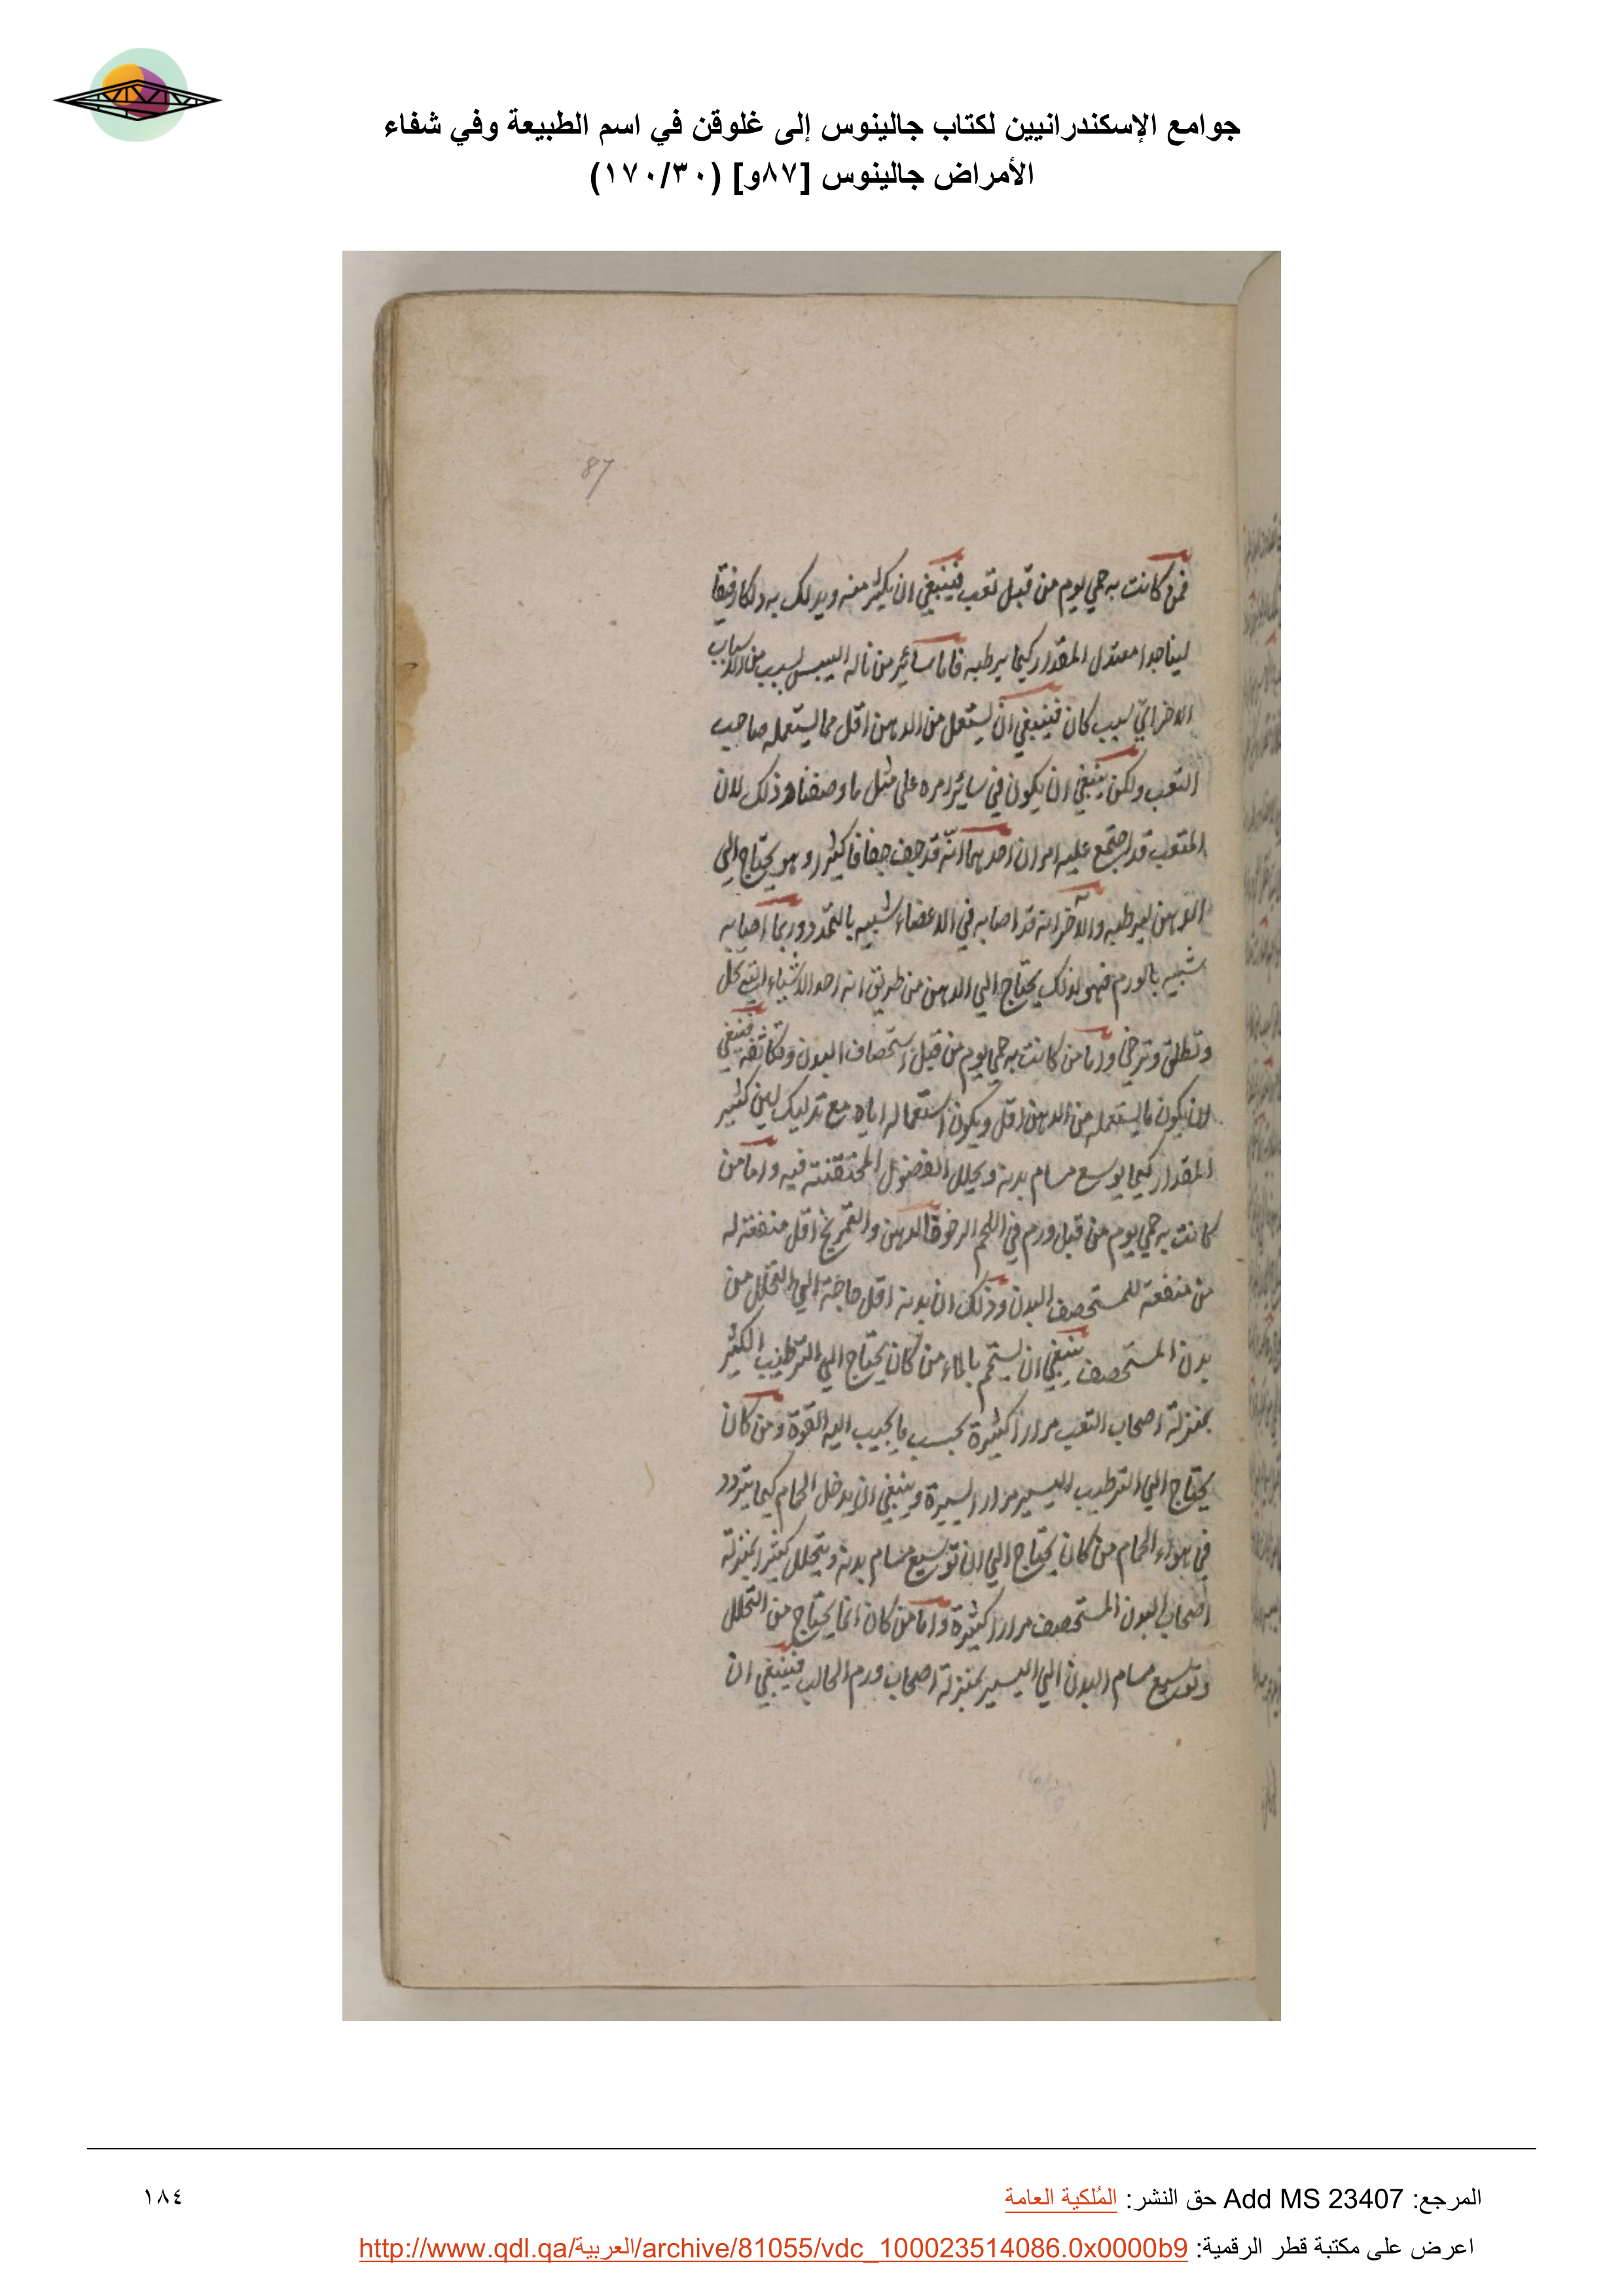 جوامع الإسكندرانيين لكتاب جالينوس إلى غلوقن في اسم الطبيعة وفي شفاء
الأمراض جالينوس [٨٧و] (١٧٠/٣٠)
87
فمن كانت به حمي يوم من قبل تعب فينبغي ان يكثر منه ويدلك به دلكا رفيقا
لينا جدا معتدل المقدار كيما يرطبه فاما سائر من ناله اليبس لسبب من الاسباب
الاخر اي سبب كان فينبغي ان يستعمل من الدهن اقل مما يستعمله صاحب
التعب ولكن ينبغي ان يكون في سائر امره علي مثل ما وصفنا وذلك لان
المتعب قد اجتمع عليه امران احدهما انه قد جف جفافا كثيرا وهو يحتاج الي
الدهن ليرطبه والاخر انه قد اصابه في الاعضاء شبيه بالتمدد وربما اصابه
شبيه بالورم فهو لذلك يحتاج الي الدهن من طريق انه احد الاشياء التي تحلل
وتطلق وترخي واما من كانت به حمي يوم من قبل استحصاف البدن وتكاثفه فينبغي
ان يكون ما يستعمله من الدهن اقل ويكون استعماله اياه مع تدليك لين كثير
المقدار كيما يوسع مسام بدنه ويحلل الفضول المختقنة فيه واما من
كانت به حمي يوم من قبل ورم في اللحم الرخو فالدهن والتمريخ اقل منفعة له
من منفعة للمستحصف البدن وذلك ان بدنه اقل حاجة الي التحلل من
بدن المستحصف ينبغي ان يستحم بالماء من كان يحتاج الي الترطيب الكثير
بمنزلة اصحاب التعب مرارا كثيرة بحسب ما يجيب اليه القوة ومن كان
يحتاج الي الترطيب اليسير مرارا يسيرة وينبغي ان يدخل الحمام كيما يتردد
في هواء الحمام من كان يحتاج الي ان توسيع مسام بدنه ويتحلل كثيرا بمنزلة
اصحاب البدن المستحصف مرارا كثيرة واما من كان انما يحتاج من التحلل
وتوسيع مسام البدن الي اليسير بمنزلة اصحاب ورم الحالب فينبغي ان
المرجع: Add MS 23407 حق النشر: المُلكية العامة
١٨٤
اعرض على مكتبة قطر الرقمية: http://www.qdl.qa/العربية/archive/81055/vdc_100023514086.0x0000b9